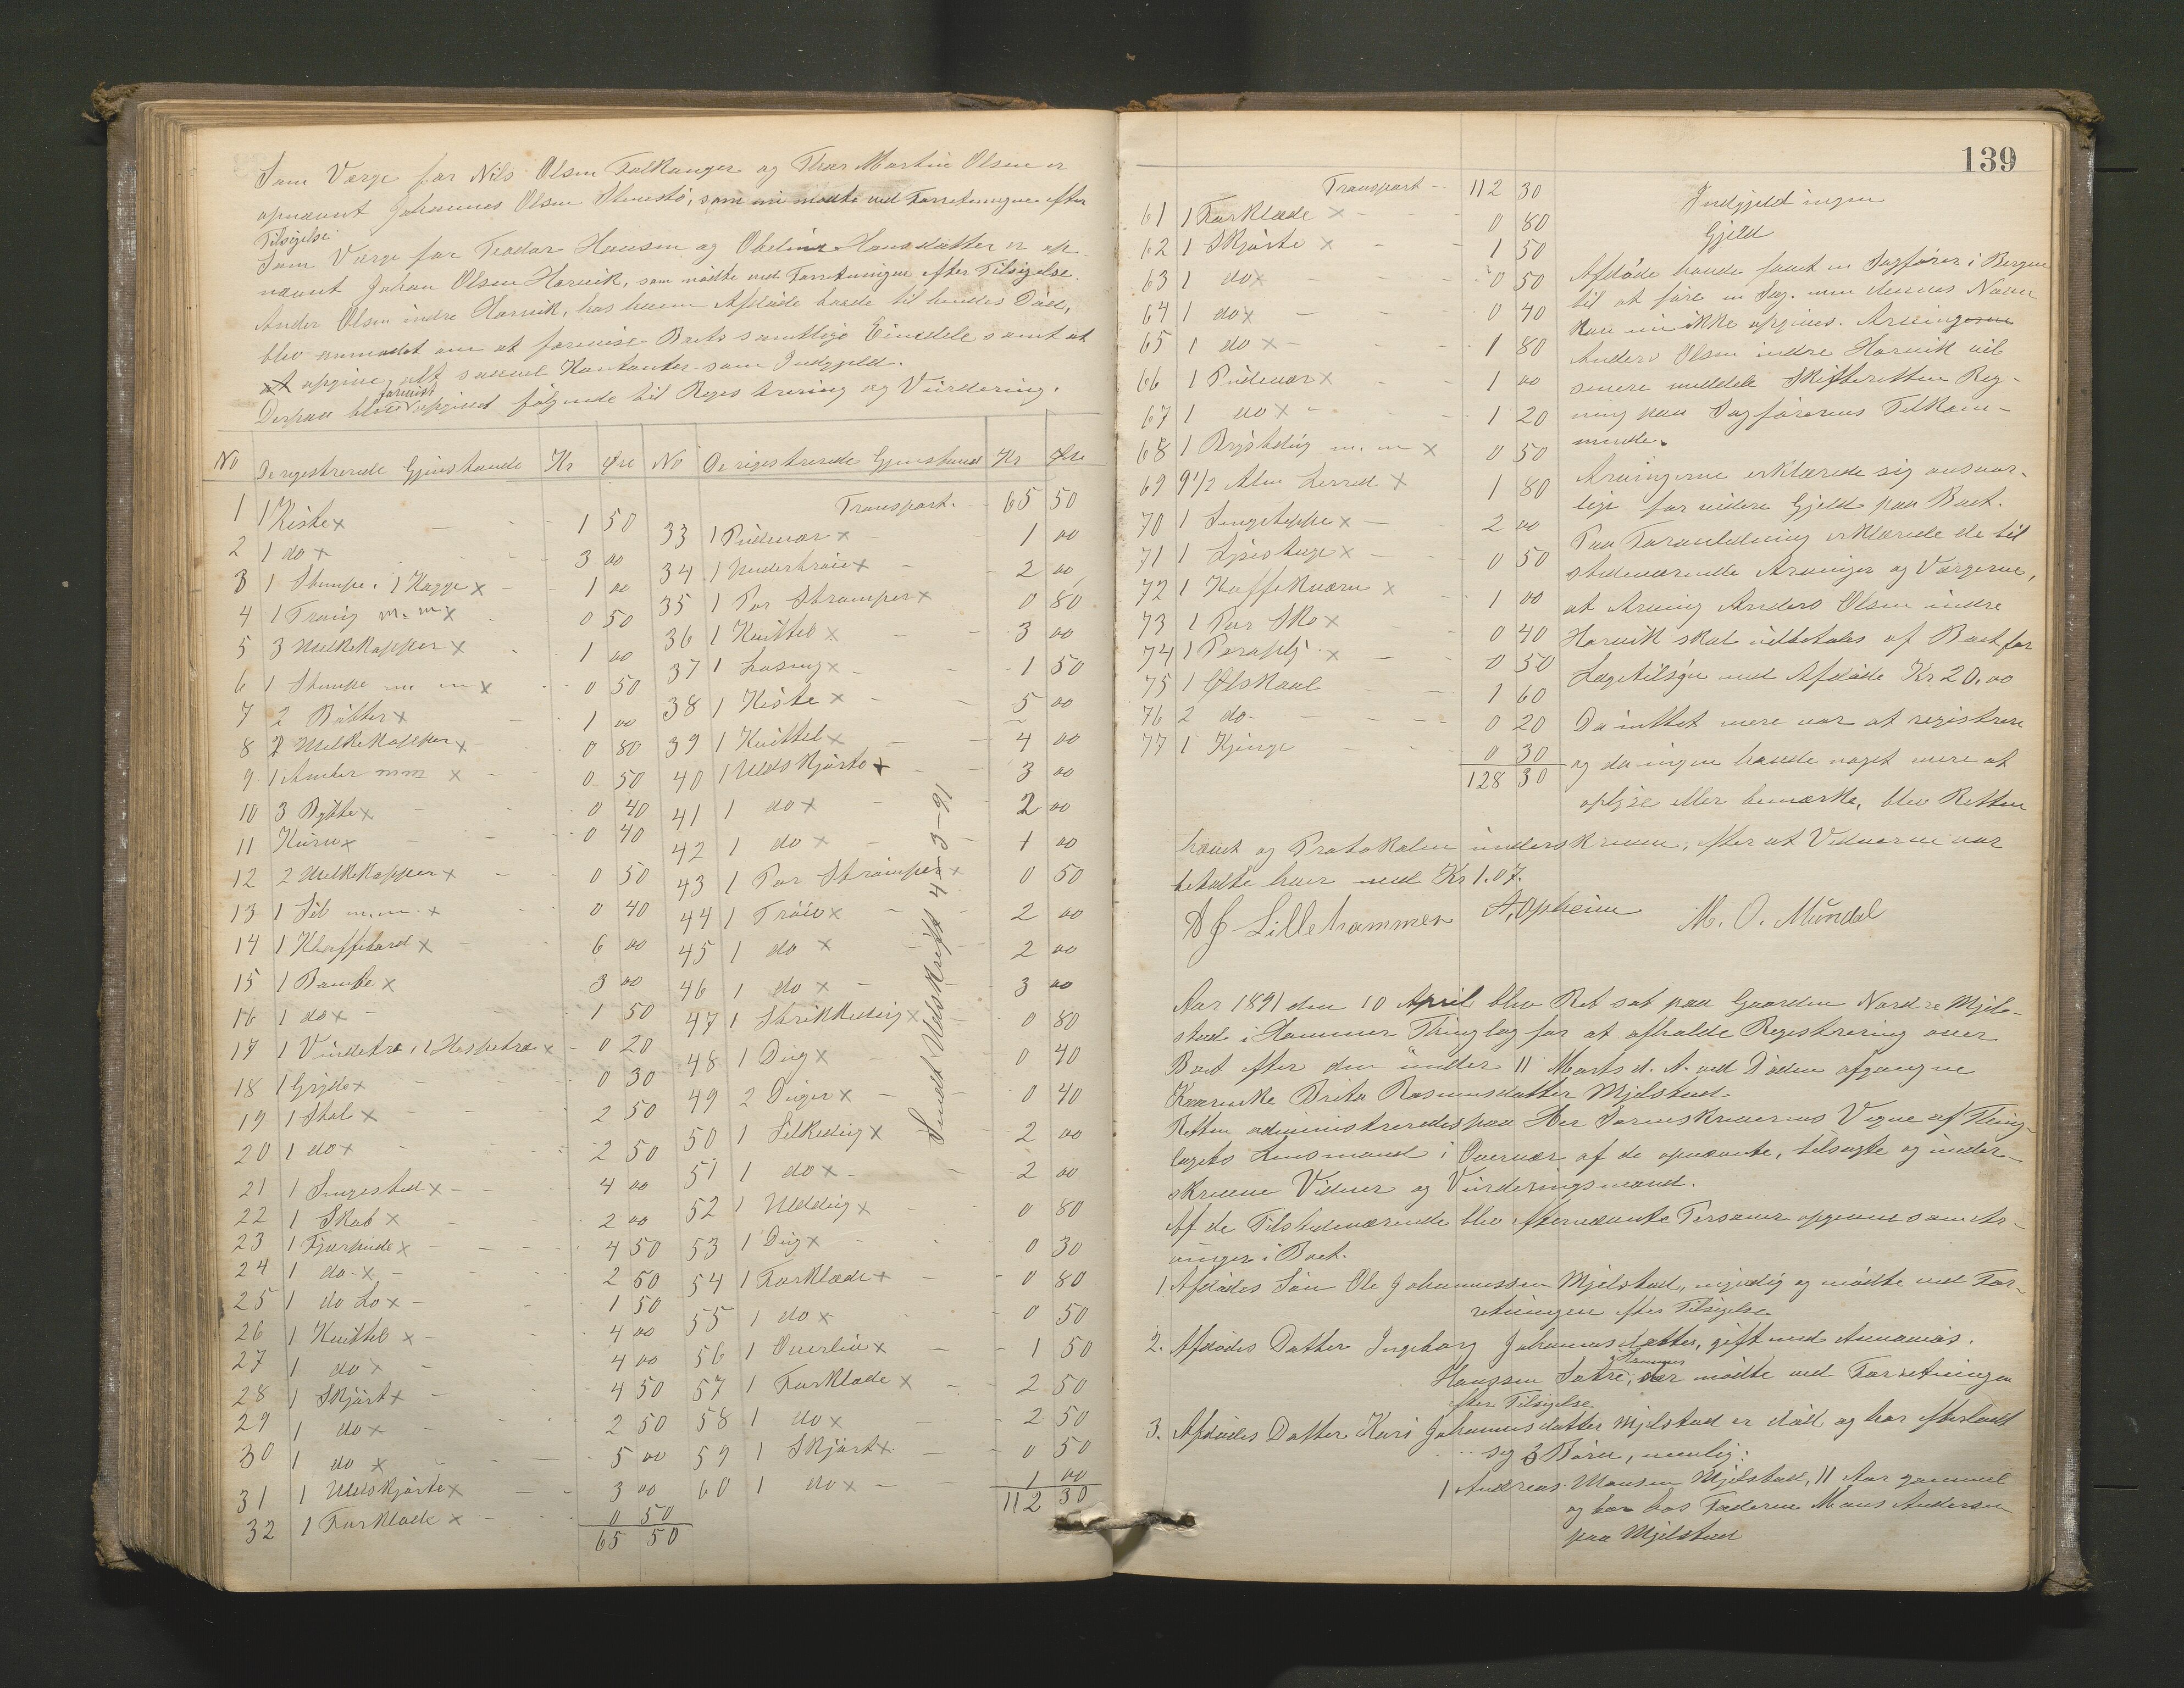 Som Værge for Nils Olsen Falkanger og Thor Martin Olsen er
opnævnt Johannes Olsen, som nu mødte ved Forretningen efter
Tilsigelse.
Som Værge for Teodor Hansen og Obeline Hansdatter er op
nævnt Johan Olsen Hørvik, som mødte ved Forretningen efter Tilsigelse.
Anders Olsen indre Hørvik, hos hvem Afdøde havde til hendes Død,
blev anmodet om at forevise Boets samtlige Eiendele samt at
at opgive alt saavel Kontanter som Indgjeld.
Derpaa blev forevist opgivet følgende til Registrering og Vurdering.
No De registrerede Gjenstande Kr Øre No De registrerede Gjenstand Kr Øre
Transport. 65 50
1 1 Kiste x 1 50
2 1 do x 3 00
3 1 Stampe, 1 Kagge x 1 00
4 1 Traug m. m x 0 50
5 3 Melkekopper x 1 00
6 1 Stampe m m x 0 50
7 2 Bøtter x 1 00
8 2 Melkekopper x 0 80
9 1 Anker mm x 0 50
10 3 Bytte x 0 40
11 Kurv x 0 40
12 2 Melkekopper x 0 50
13 1 Sil m.m. x 0 40
14 1 Klaffebord x 6 00
15 1 x 3 00
16 1 do x 1 50
17 1 Vindetræ, 1 Hespetræ x 0 20
18 1 Gryde x 0 30
19 1 Stol x 2 50
20 1 do x 2 50
21 1 Sengested x 4 00
22 1 Skab x 2 00
23 1 Fjærpude x 4 50
24 1 do x 2 50
25 1 do x 1 50
26 1 Kvittel x 4 00
27 1 do x 4 00
28 1 Skjørt x 4 50
29 1 do x 2 50
30 1 do x 5 00
31 1 Uldskjørte x 3 00
32 1 Forklæde x 0 50
65 50
33 1 Pudevar x 1 00
34 1 Undertrøie x 2 00
35 1 Par Strømper x 0 80
36 1 Kvittel x 3 00
37 1 x 1 50
38 1 Kiste x 5 00
39 1 Kvittel x 4 00
40 1 Uldskjørte x 3 00
41 1 do x 2 00
42 1 do x 1 00
43 1 Par Strømper x 0 50
44 1 Trøie x 2 00
45 1 do x 2 00
46 1 do x 3 00
47 1 Strikkedug x 0 80
48 1 Dug x 0 40
49 2 Duger x 0 40
50 1 Silkedug x 2 00
51 1 do x 2 00
52 1 Ulddug x 0 80
53 1 Dug x 0 30
54 1 Forklæde x 0 80
55 1 do x 0 50
56 1 Overliv x 1 50
57 1 Forklæde x 2 50
58 1 do x 2 50
59 1 Skjørt x 0 50
60 1 do x 1 00
112 30
Sendt Udskrift 4-3-91
139
Transport 112 30
61 1 Forklæde x 0 80
62 1 Skjørte x 1 50
63 1 do x 0 50
64 1 do x 0 40
65 1 do x 1 80
66 1 Pudevar x 1 00
67 1 do x 1 20
68 1 Brystdug m. m x 0 50
69 9 1/2 Alen Lerred x 1 80
70 1 Sengeteppe x 2 00
71 1 x 0 50
72 1 Kaffekværn x 1 00
73 1 Par Sko x 0 40
74 1 Paraply x 0 50
75 1 Ølskaal 1 60
76 2 do 0 20
77 1 Kjenge 0 30
128 30
Indgjeld ingen
Gjeld
Afdøde havde havt en Sagfører i Bergen
til at føre en Sag, men dennes Navn
kan nu ikke opgives. Arvingerne
Anders Olsen indre Hørvik vil
senere meddele Skifteretten Reg-
ning paa Sagførerens Tilkom-
mende.
Arvingerne erklærede sig ansvar-
lige for videre Gjeld paa Boet.
Paa Foranledning erklærede de til
stedeværende Arvinger og Værgerne,
at Arving Anders Olsen indre
Hørvik skal udbetales af Boet for
Lægetilsyn ved Afdøde Kr 20.00
Da intet mere var at registrere
og da ingen havde noget mere at
oplyse eller bemærke, blev Retten
hævet og Protokolen underskreven, efter at Vidnerne var
betalte hver med Kr 1.07.
A J Lillehammer A. Opheim M. O. Mundal
Aar 1891 den 10 April blev Ret sat paa Gaarden Nordre Mjel-
stad i Hammer Thinglag for at afholde Registrering over
Boet efter den under 11 Marts d. A. ved Døden afgangne
Kaarenke Brita Rasmusdatter Mjelstad
Retten administreredes paa Hr Sorenskriverens Vegne af Thing-
lagets Lensmand i Overvær af de opnævnte, tilsagte og under-
skrevne Vidner og Vurderingsmænd.
Af de Tilstedeværende blev efternævnte Personer opgivne som Ar-
vinger i Boet.
1. Afdødes Søn Ole Johannessen Mjelstad, myndig og mødte ved For-
retningen efter Tilsigelse
2. Afdødes Datter Ingeborg Johannesdatter, gift med Annanias
Hanssen Sætre, i Hammer der mødte ved Forretningen
efter Tilsigelse
3. Afdødes Datter Kari Johannesdatter Mjelstad er død og har efterladt
sig 3 Børn, nemlig:
1 Andreas Monsen Mjelstad, 11 Aar gammel
og bor hos Faderen Mons Andersen
paa Mjelstad